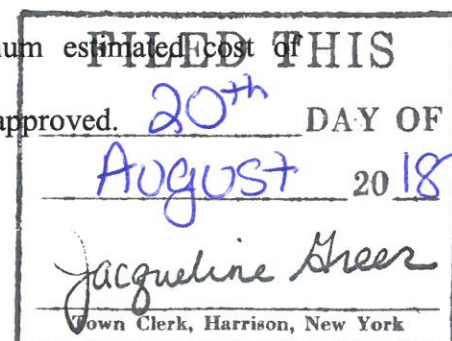 num estimated cost of
FILED THIS
approved. 20th DAY OF
August 20 18
Jacqueline Greer
Town Clerk, Harrison, New York